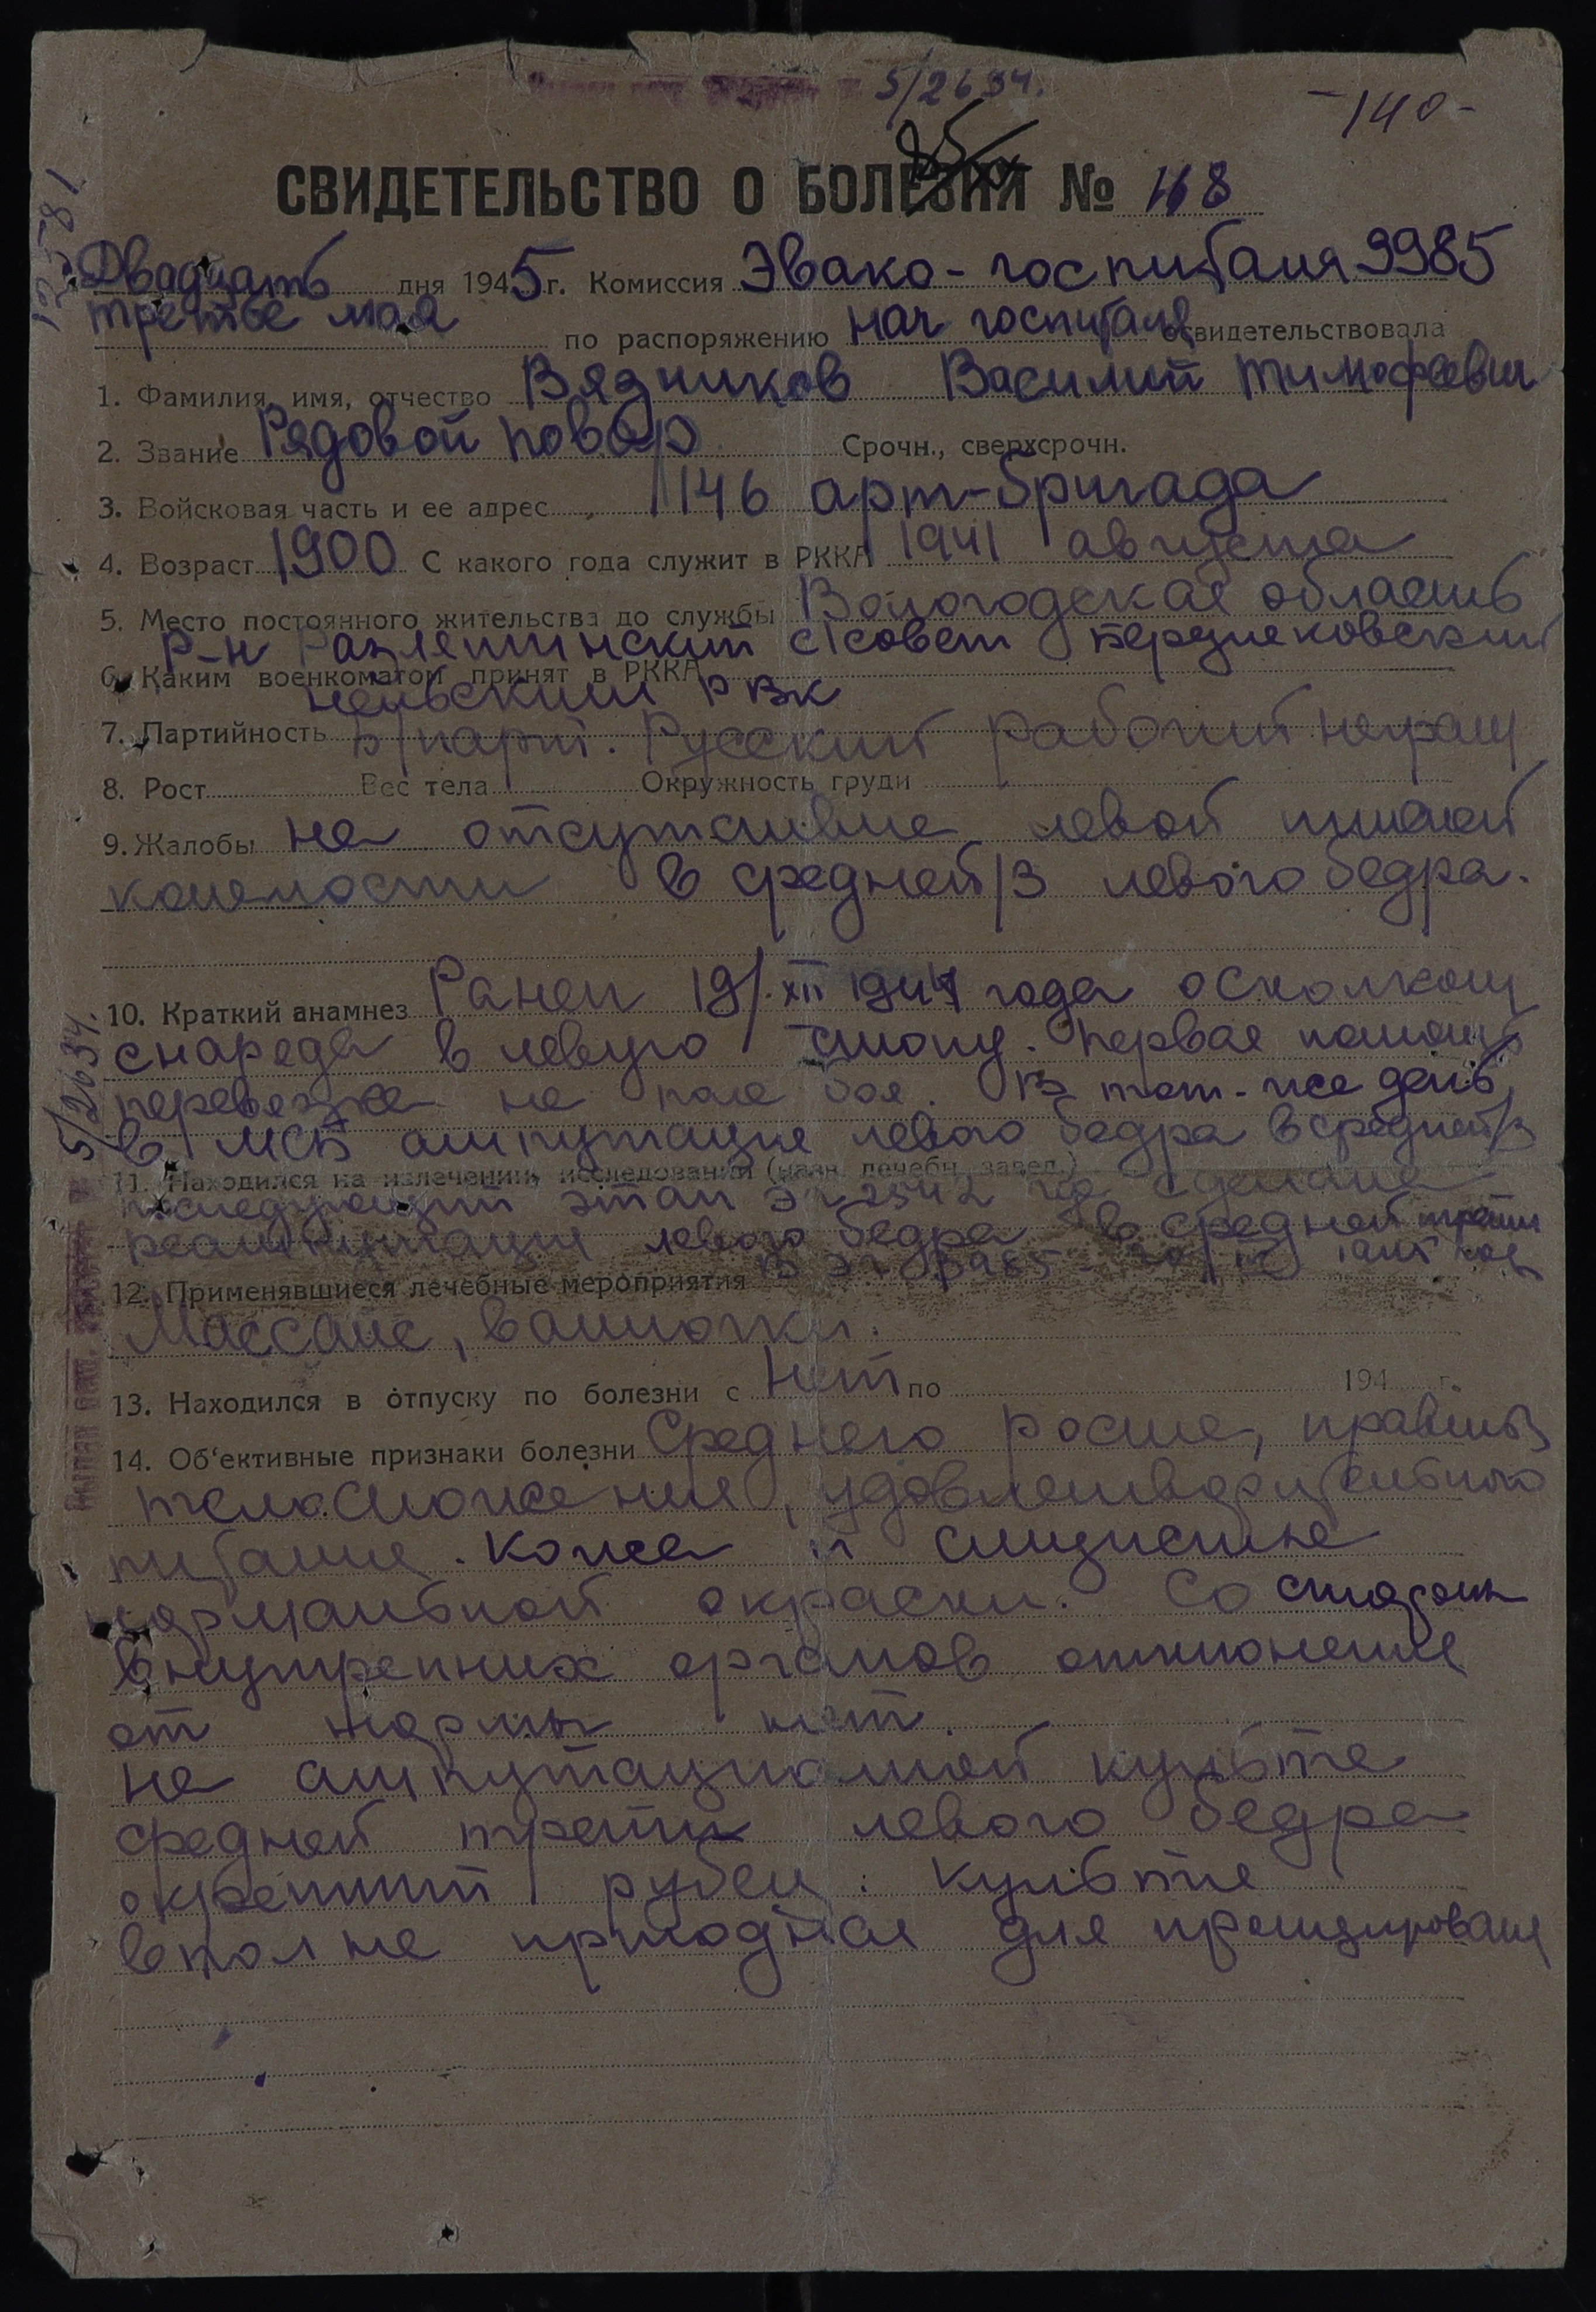 5/2634.
-140-
85
СВИДЕТЕЛЬСТВО О БОЛЕЗНИ № 168
12581
Двадцать дня 1945 г. Комиссия Эвако-госпиталя 9985
третье мая по распоряжению нач госпиталя освидетельствовала
1. Фамилия, имя, отчество Вязников Василий Тимофеевич
2. Звание Рядовой повар Срочн., сверхсрочн.
3. Войсковая часть и ее адрес 1146 арт-бригада
4. Возраст 1900 С какого года служит в РККА 1941 августа
5. Место постоянного жительства до службы Вологодская область
р-н с/совет
6. Каким военкоматом принят в РККА
РВК
7. Партийность б/парт. Русский рабочий
8. Рост Вес тела Окружность груди
9. Жалобы на отсутствие левой нижней
конечности в средней/3 левого бедра.
10. Краткий анамнез Ранен 19/XII 1944 года осколком
снаряда в левую стопу. Первая помощь
перевязка на поле боя. В тот-же день
в МСБ ампутация левого бедра в средней/3
5/2634.
11. Находился на излечении, исследовании (назн. лечебн. завед.)
последующий этап ЭГ 2542 где сделана
реампутация левого бедра в средней трети
12. Применявшиеся лечебные мероприятия В ЭГ 9985
Массаж, ванночки.
13. Находился в отпуску по болезни с Нет по 194 г.
14. Об'ективные признаки болезни Среднего роста, правильн
телосложения, удовлетворительного
питания. Кожа и слизистые
нормальной окраски. Со стороны
внутренних органов отклонения
от нормы нет.
На ампутационной культе
средней трети левого бедра
окрепший рубец. Культя
вполне пригодная для протезирования